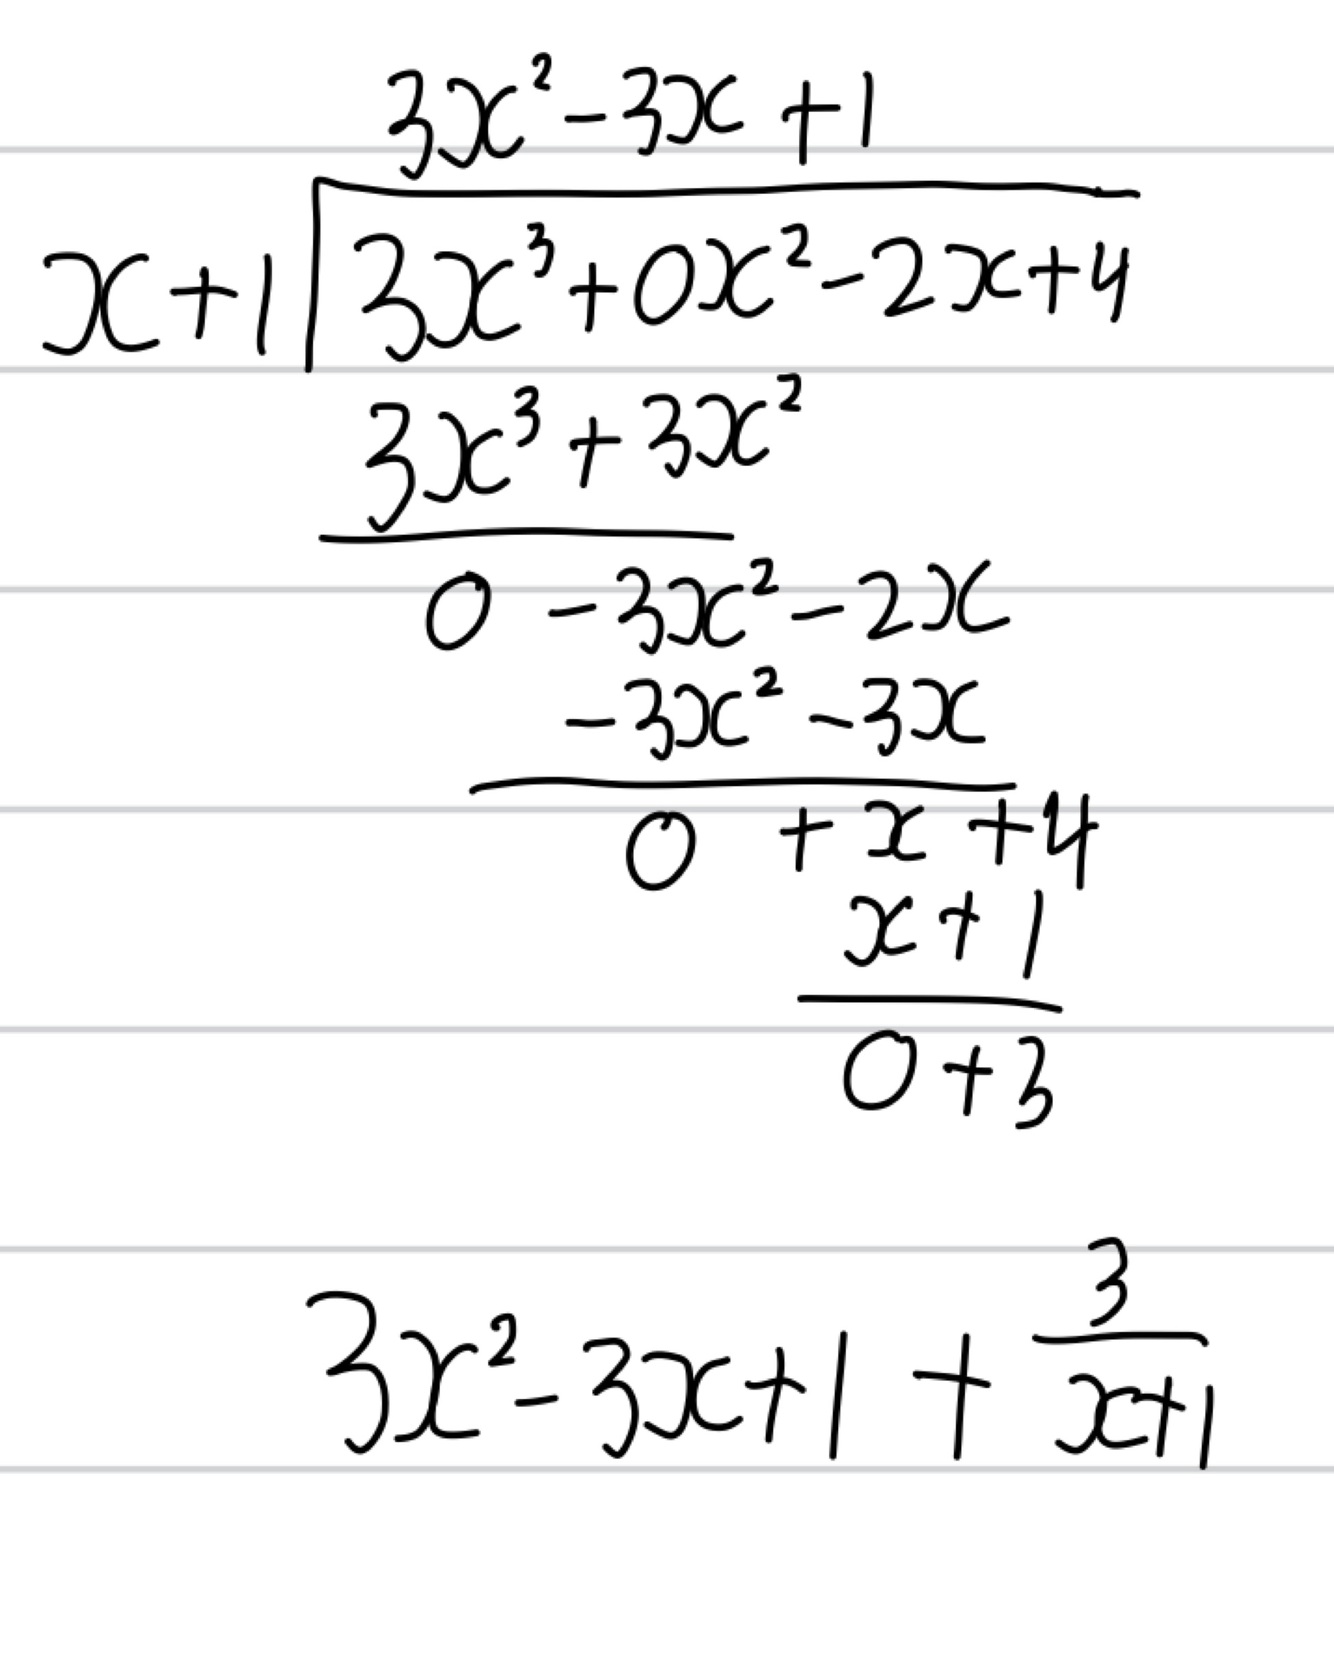 3x² - 3x + 1
x + 1 3x³ + 0x² - 2x + 4
3x³ + 3x²
0 - 3x² - 2x
- 3x² - 3x
0 + x + 4
x + 1
0 + 3
3x² - 3x + 1 + 3/(x+1)